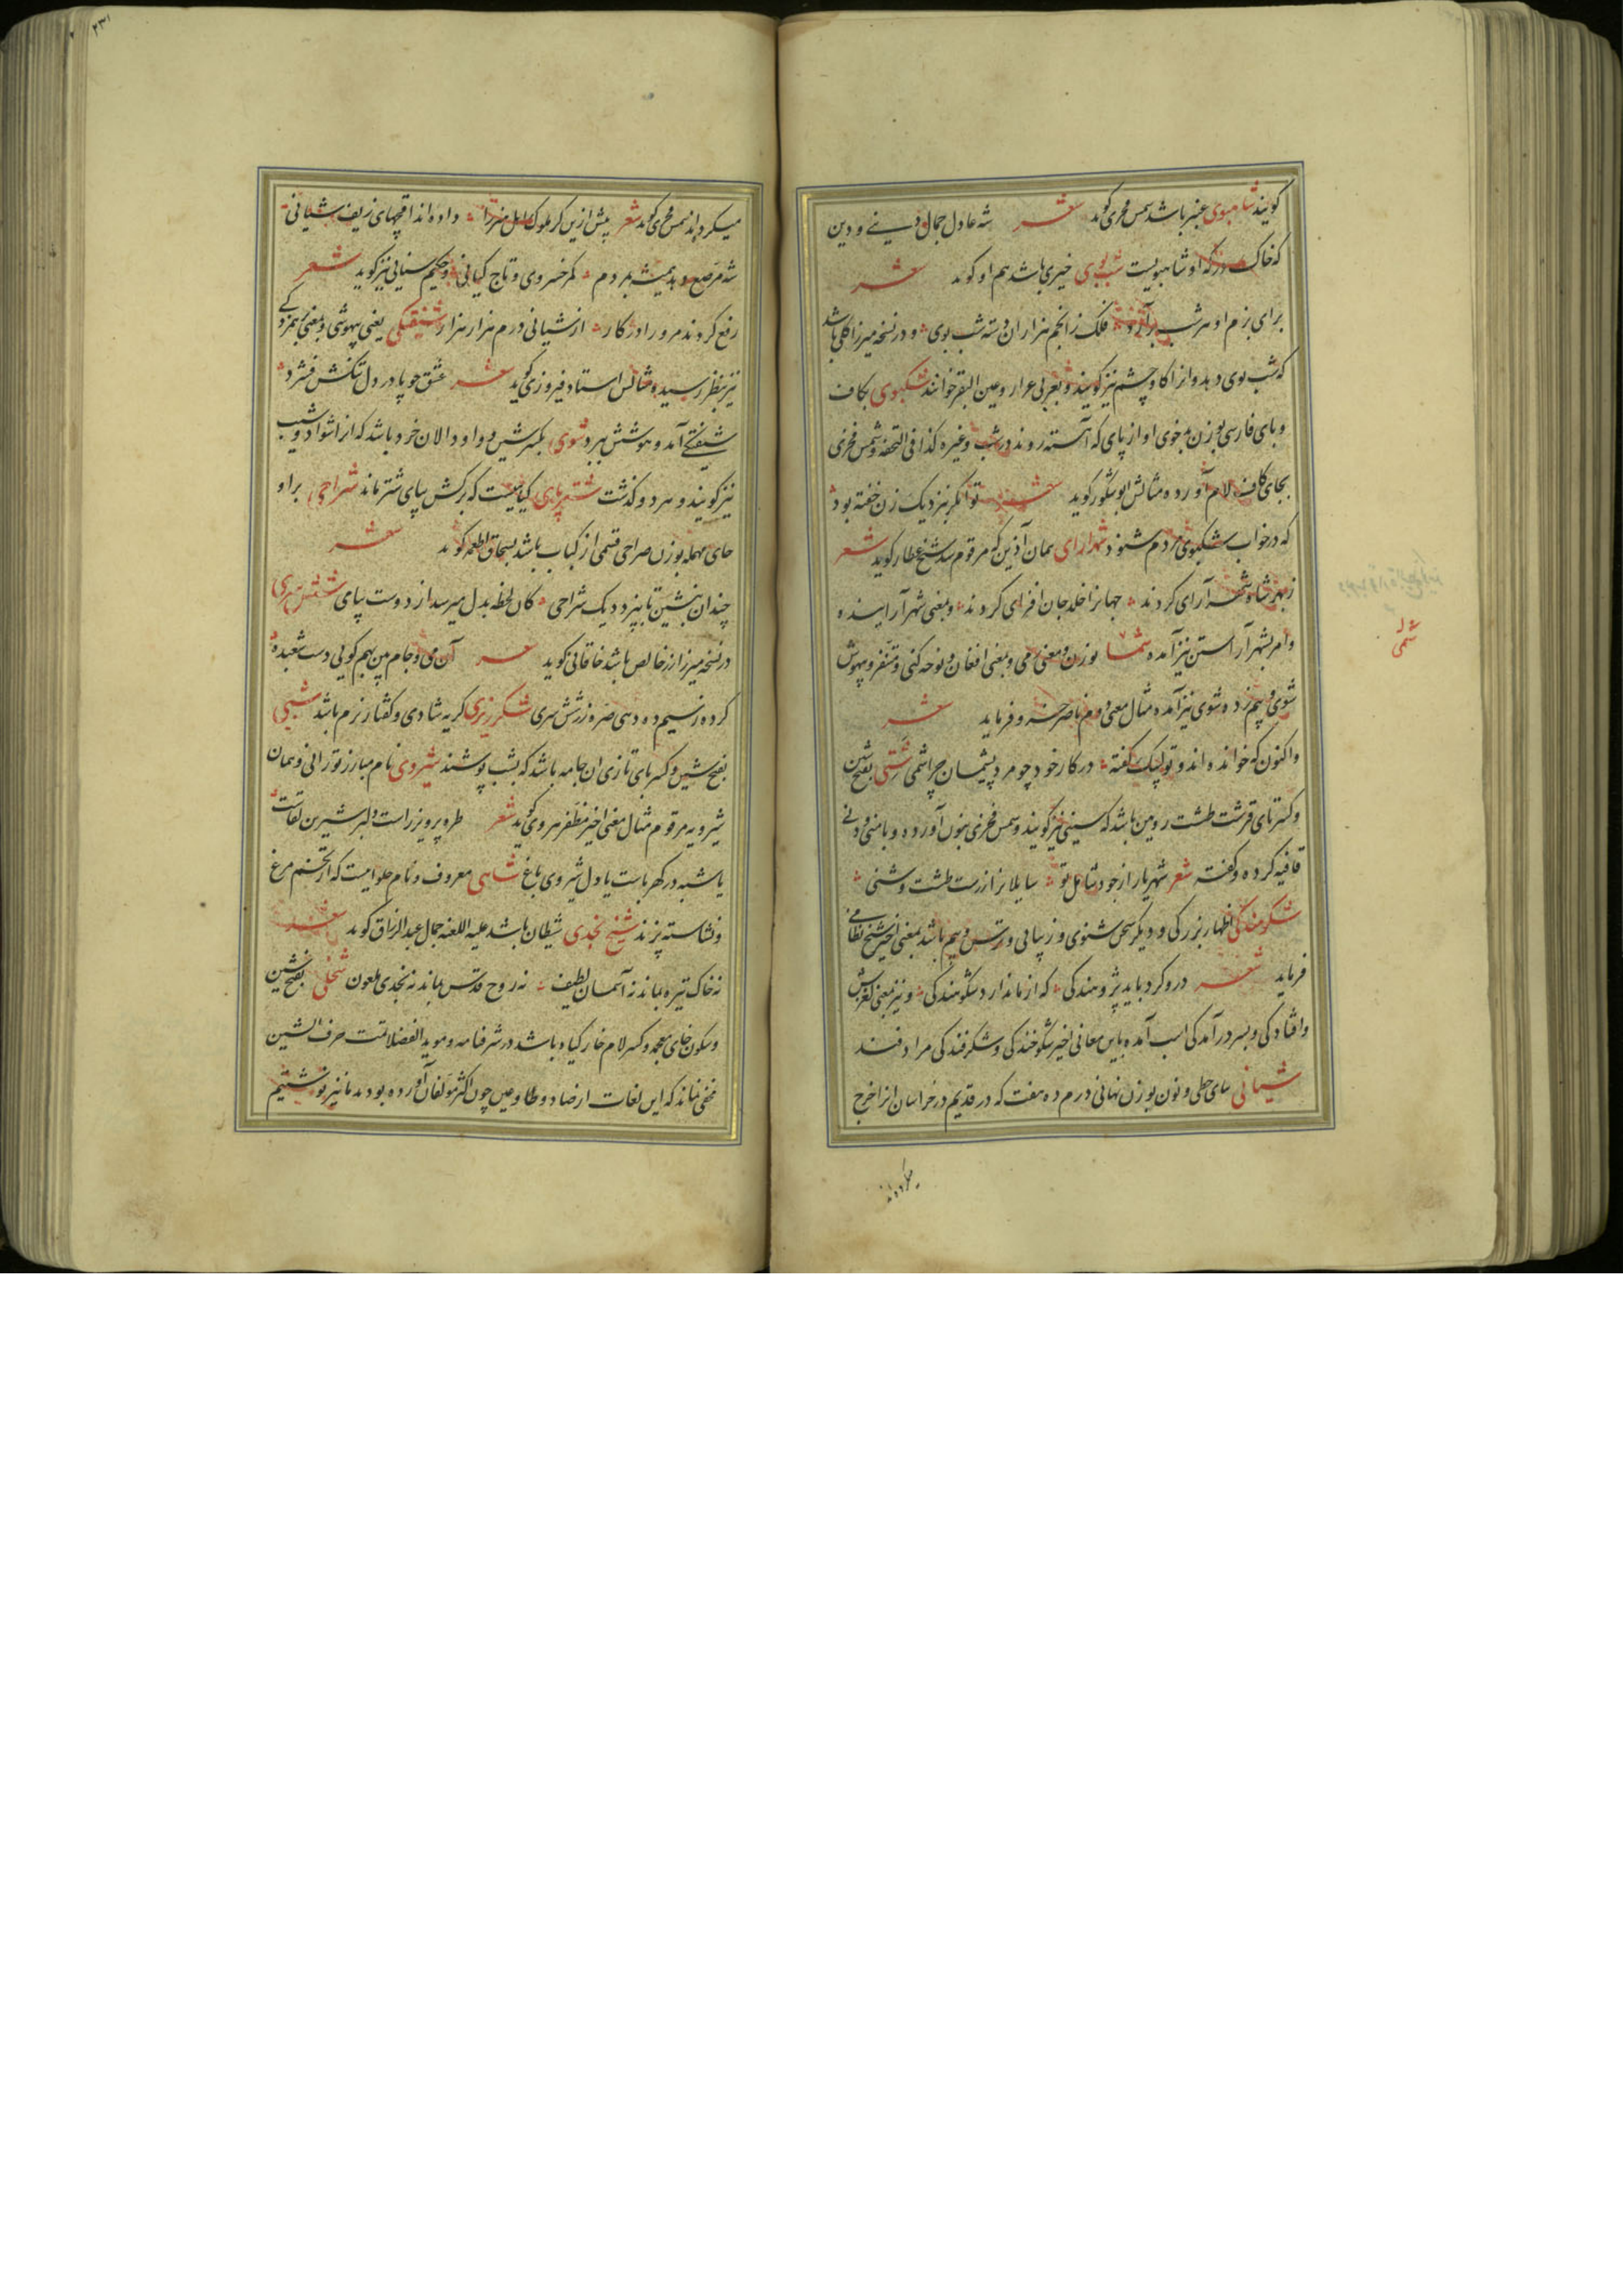 گویند شاهبوی عنبر باشد شمس فخری گوید شعر شه عادل جمال دینی و دین
که خاک درگه او شاهبویست شب بوی خیری باشد هم او گوید شعر
برای بزم او هر شب برآرد فلک ز انجم هزاران دسته شب بوی و در نسخه میرزا گلی باشد
که شب بوی دهد و انرا گاو چشم نیز گویند و بعربی عرار و عین البقر خوانند شکپوی بکاف
و بای فارسی بوزن بدخوی آواز پای که آهسته روند در شب و غیره کذا فی التحفه و شمس فخری
بجای کاف لام آورده مثالش ابو شکور گوید شعر توانگر بنزدیک زن خفته بود
که در خواب شکپوی مردم شنود شهرارای همان آذین که مرقوم شد شیخ عطار گوید شعر
ز بهر شاه شهر آرای کردند جهانرا خلد جان افزای کردند و بمعنی شهر آراینده و
و امر بشهر آراستن نیز آمده شما بوزن و معنی و بمعنی افغان و نوحه کنی و متنفر و بیهوش
شوی و بهم زده شوی نیز آمده مثال معنی دوم ناصر خسرو فرماید شعر
و اکنون که خوانده اند و تو لبیک گفته در کار خود چو مرد پشیمان چرا شمی شتی بفتح شین
و کسر تای قرشت طشت رویین باشد که سینی نیز گویند و شمس فخری بنون آورده و با منی و دنی
قافیه کرده و گفته شعر شهریار از جود شامل تو سایلانرا زرست طشت و شنی
شکوهندگی اظهار بزرگی و دیگر سخن شنوی و زیبایی و ترس و بیم باشد بمعنی اخیر شیخ نظامی
فرماید شعر درو کرد باید پژوهندگی که از ما ندارد شکوهندگی و نیز بمعنی لغزش
و افتادگی و بسر درآمدگی اسب آمده باین معانی اخیر شکوخندگی و شکرفندگی مرادفند
شیانی بیای حطی و نون بوزن نهانی درم ده هفت که در قدیم در خراسان انرا خرج
میکرده اند
شمی
۲۳۱
میکرده اند شمس فخری گوید شعر پیش ازین گر ملوک اهل هنر را داده اند اقچهای زیف شیانی
شه مرصع دهد همیشه بمردم کمر خسروی و تاج کیانی و حکیم سنایی نیز گوید شعر
رفع کردند مرو را در کار از شیانی درم هزار هزار شیفتگی یعنی بیهوشی و بمعنی
نیز بنظر رسیده مثالش استاد فیروزی گوید شعر عشق چو پا در دل تنکش فشرد
شیفتگی آمد و هوشش ببرد شوی بکسر شین و واو دالان خرد باشد که انرا شواد و شیب
نیز گویند و مرد و گذشت شتر پای گیاهیست که برگش بپای شتر ماند شراحی برا و
حای مهمله بوزن صراحی قسمی از کباب باشد بسحاق اطعمه گوید شعر
چندان بنشین تا بپزد دیک شراحی کان لحظه بدل میرسد از دوست پیامی شش سری
در نسخه میرزا زر خالص باشد خاقانی گوید شعر آن می و جام بین بهم گویی دست شعبده
کرده ز سیم ده دهی صره زر شش سری شکر ریزی گریه شادی و گفتار نرم باشد شبی
بفتح شین و کسر بای تازی ان جامه باشد که بشب پوشند شیروی نام مبارز تورانی و همان
شیرویه مرقوم مثال معنی اخیر مظفر هروی گوید شعر طره پرویز راست دلبر شیرین لقاست
یا شبه در کهرباست یا دل شیروی باغ شاهی معروف و نام حلواییست که از تخم مرغ
و نشاسته پزند شیخ نجدی شیطان باشد علیه اللعنه جمال عبد الرزاق گوید شعر
نه خاک تیره بماند نه آسمان لطیف نه روح قدس بماند نه نجدی ملعون شخلی بفتح شین
و سکون خای معجمه و کسر لام خار گیاه باشد در شرفنامه و موید الفضلا تمت حرف الشین
مخفی نماند که این لغات از ضاد و طا و عین چون اکثر مولفان آورده بودند ما نیز نوشتیم